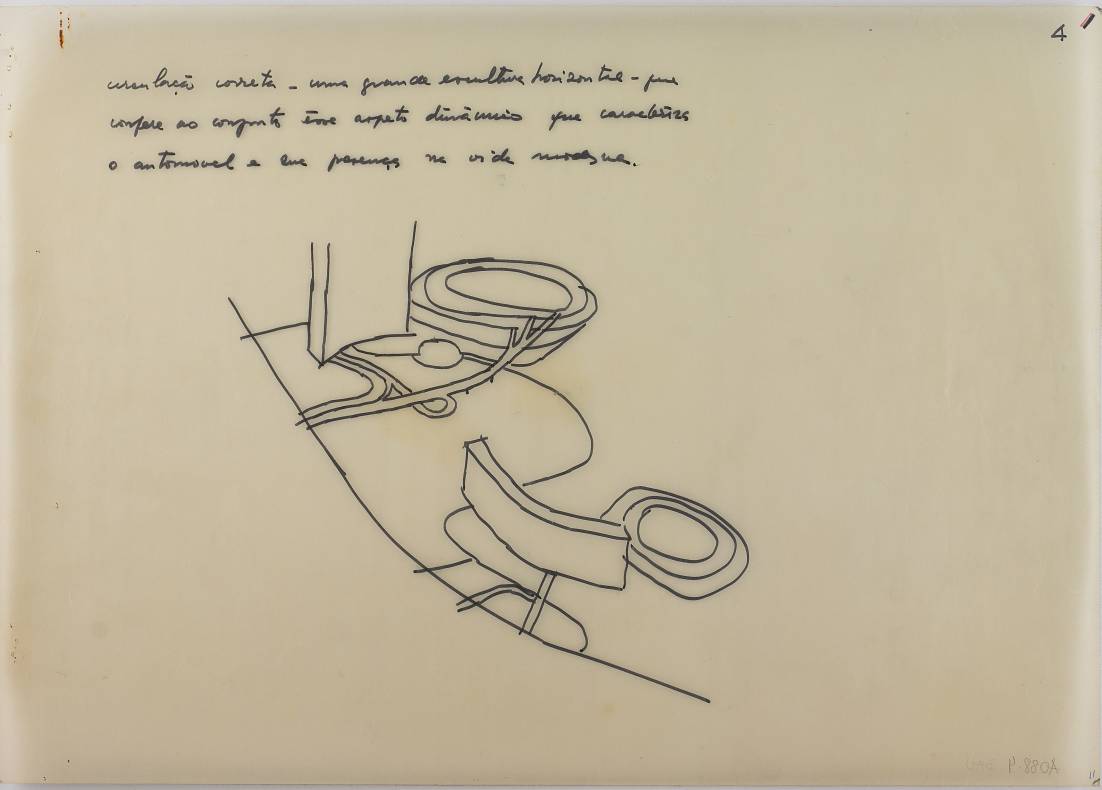 4
circulação correta - uma grande escultura horizontal - que
confere ao conjunto êsse aspeto dinâmico que caracteriza
o automovel e sua presença na vida moderna.
P.880A